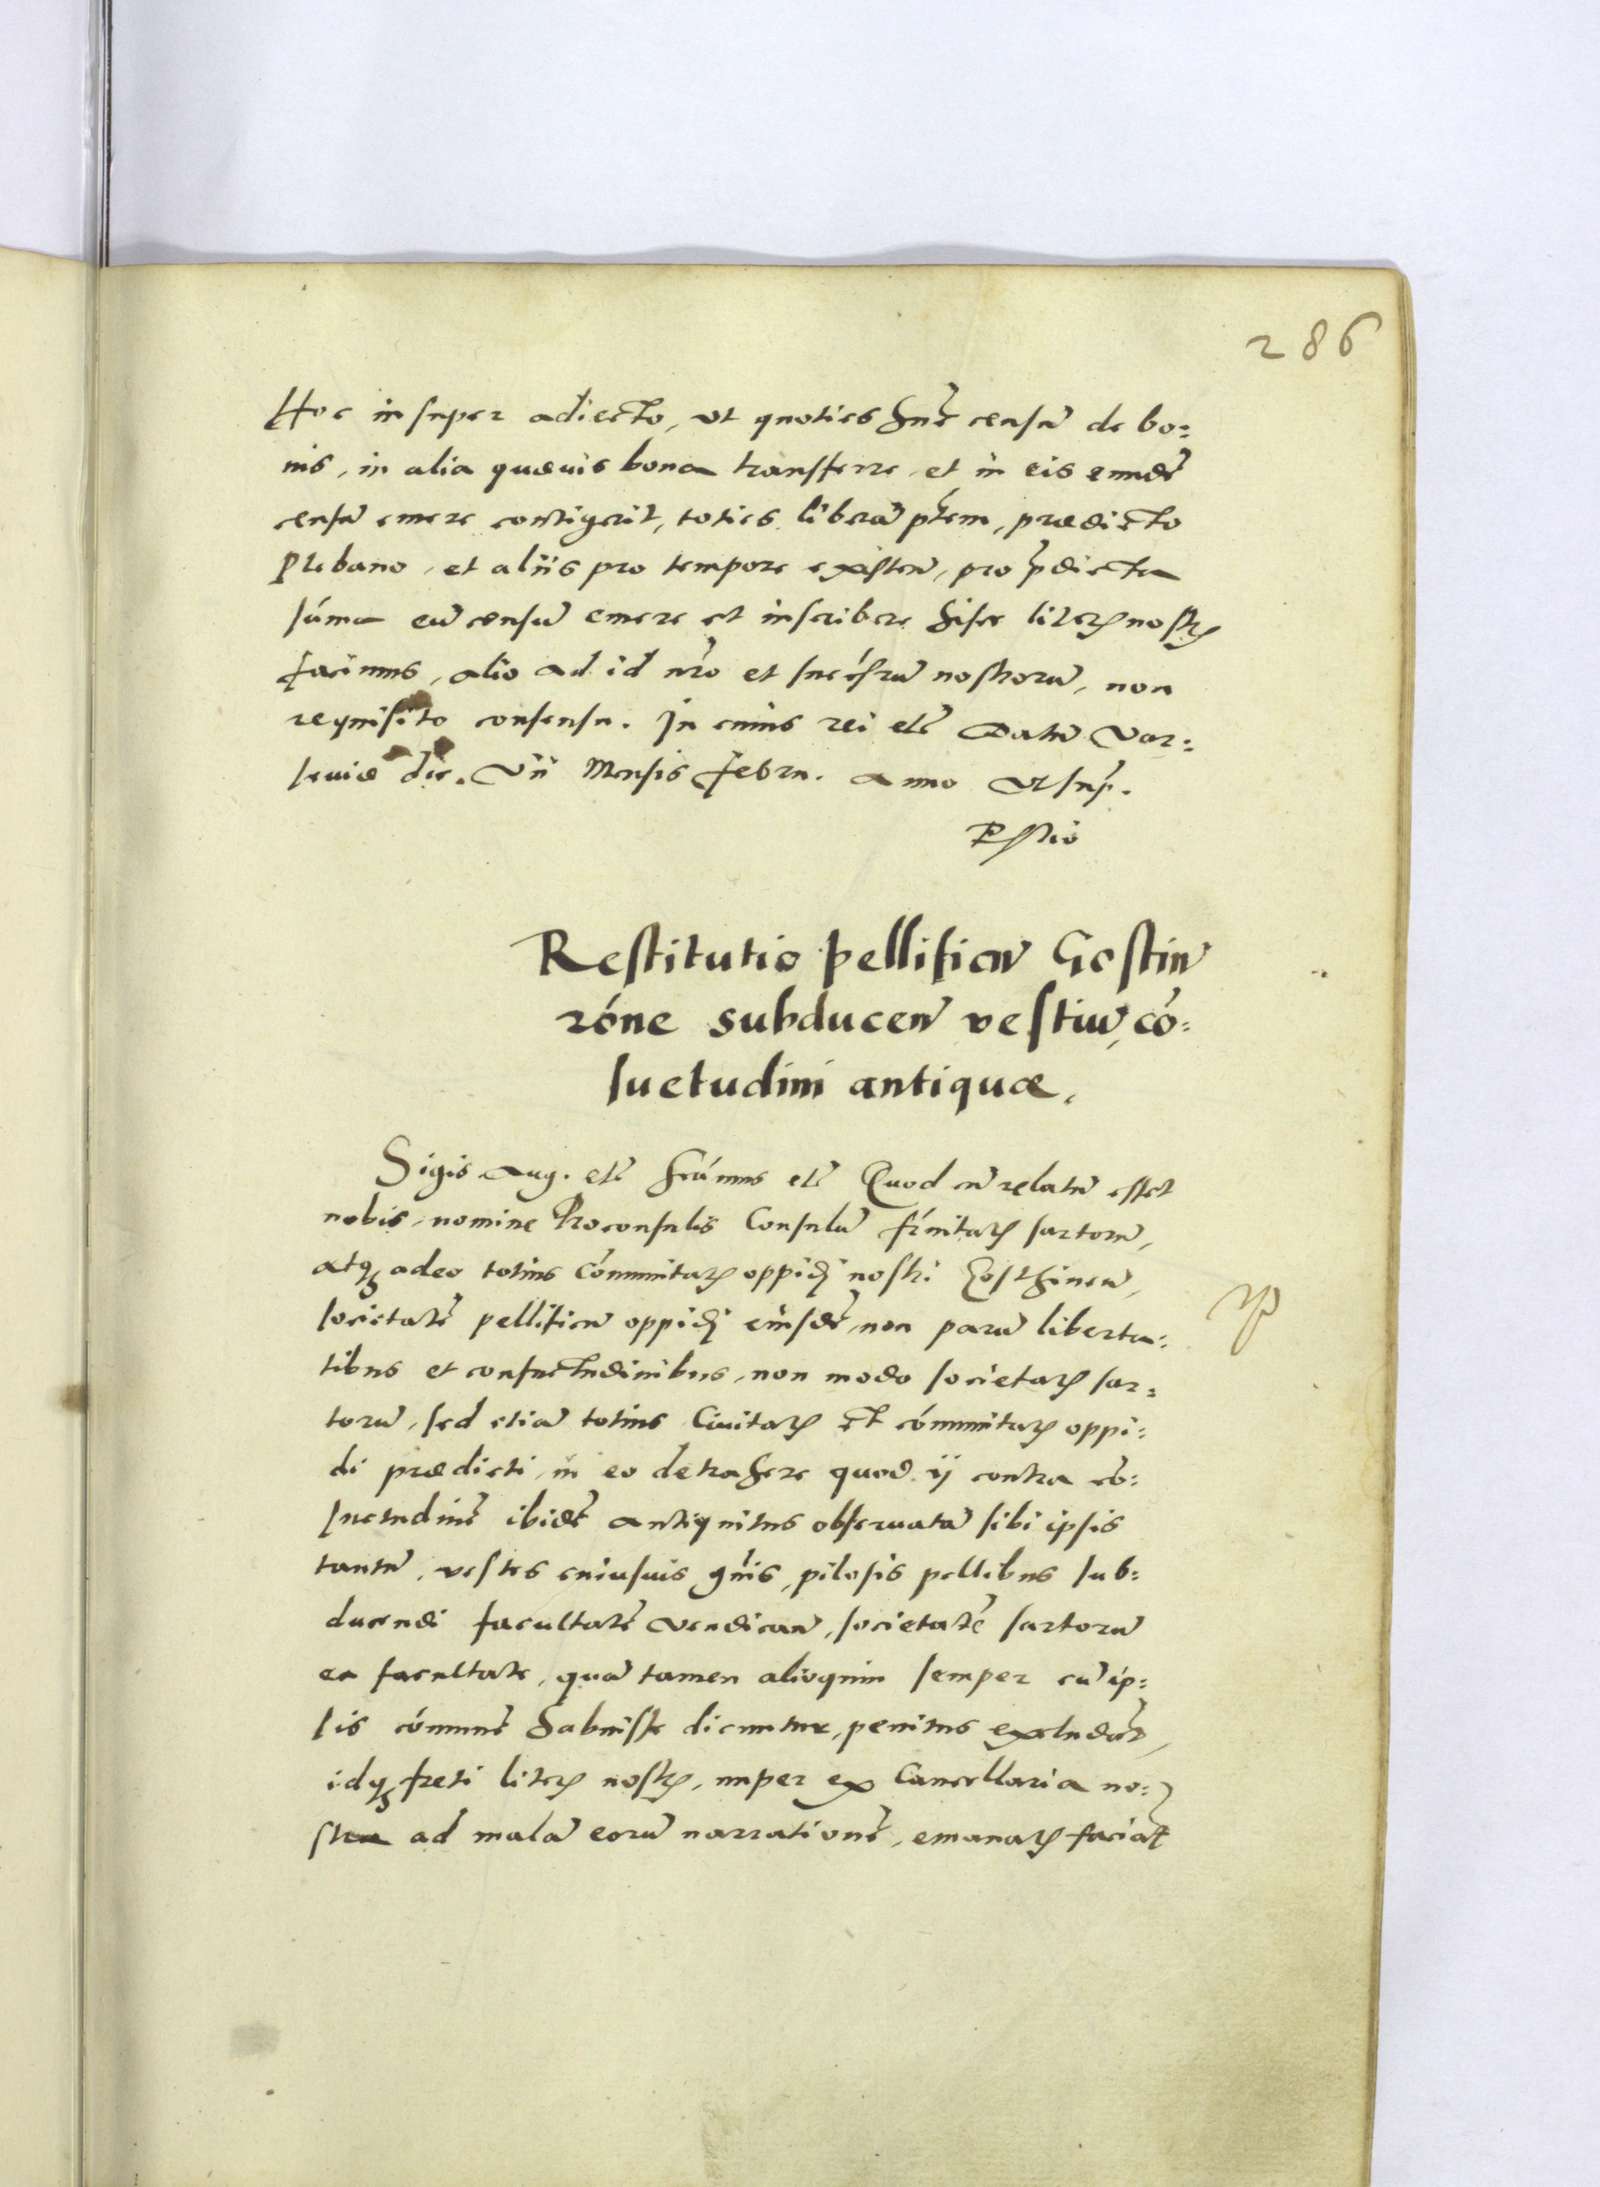 286
Hoc in super adiecto, ut quoties hu͞c censu͞ de bo:
nis, in alia quævis bona transferre, et in eis eunde͞
censu͞ emere contigerit, toties libera͞ pt͞em, prædicto
Plebano, et aliis pro tempore existen͞, pro p͞dicta
sum͞a eu͞ censu͞ emere et inscribere hisce literꝭ nostrꝭ
facimus, alio ad id n͞ro et succ͞sru͞ nostroru͞, non
requisito consensu. In cuius rei etc͞ Datu͞ Var:
saviæ die. VII Mensis Febru. Anno Ut sup͞.
R͞stio
Restitutio pellificu͞ Gostin͞
r͞one subducen͞ vestiu͞, co͞:
suetudini antiquæ.
Sigis. Aug. etc͞ Sc͞imus etc͞ Quod cu͞ relatu͞ esset
nobis, nomine Proconsulis Consulu͞ fr͞nitatꝭ sartoru͞,
atqꝫ adeo totius Com͞unitatꝭ oppidj nostri Gosthinen͞,
societate͞ pellificu͞ oppidj eiusde͞, non paru͞ liberta:
tibus et consuetudinibus, non modo societatꝭ sar:
toru͞, sed etia͞ totius Civitatꝭ et com͞unitatꝭ oppi:
di prædicti, in eo detrahere quod ij contra co͞:
suetudine͞ ibide͞ antiquitus observata͞ sibi ipsis
tantu͞, vestes cuiusvis gn͞is, pilosis pellibus sub:
ducendi facultate͞ vendican͞, societate͞ sartoru͞
ea facultate, qua͞ tamen alioquin semper cu͞ ip:
sis com͞une͞ habuisse dicuntur, penitus excludere͞t,
idqꝫ freti literꝭ nostrꝭ, nuper ex Cancellaria no:
stra ad mala͞ eoru͞ narratione͞, emanatꝭ facia͞t